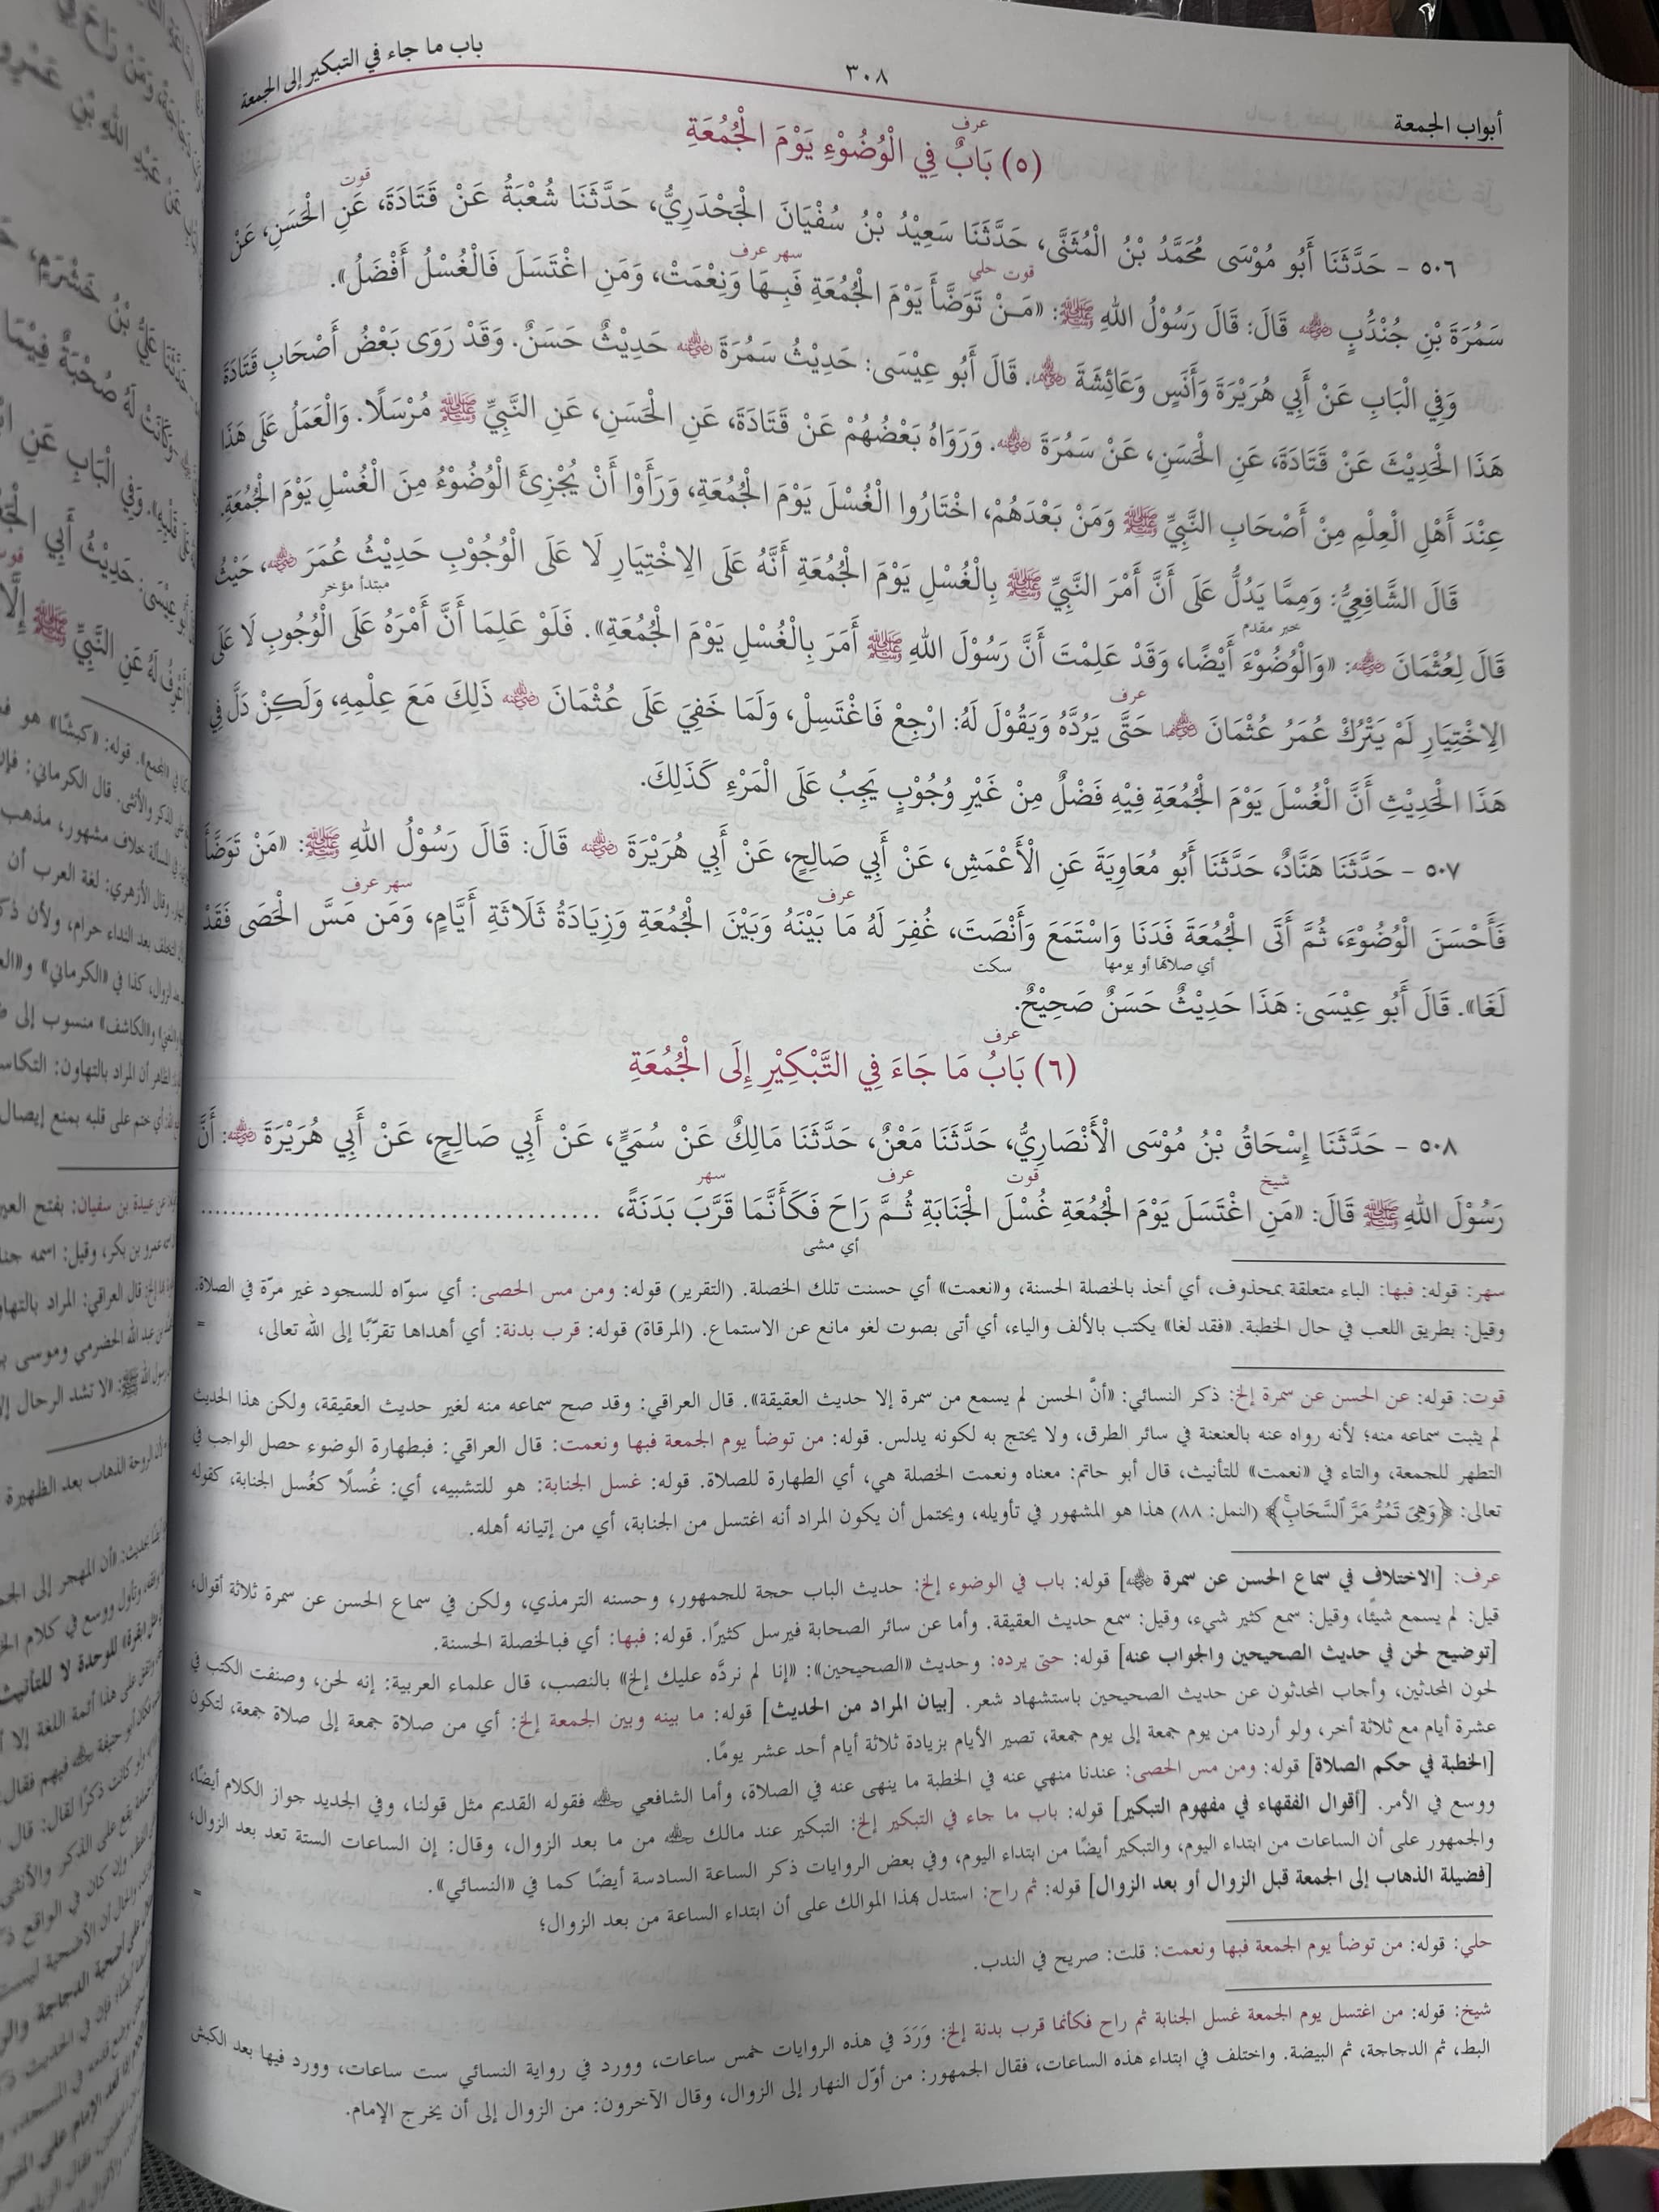 أبواب الجمعة
٣٠٨
باب ما جاء في التبكير إلى الجمعة
عرف
(٥) بَابٌ فِي الْوُضُوْءِ يَوْمَ الْجُمُعَةِ
قوت
٥٠٦ - حَدَّثَنَا أَبُو مُوْسَى مُحَمَّدُ بْنُ الْمُثَنَّى، حَدَّثَنَا سَعِيْدُ بْنُ سُفْيَانَ الْجَحْدَرِيُّ، حَدَّثَنَا شُعْبَةُ عَنْ قَتَادَةَ، عَنِ الْحَسَنِ، عَنْ
قوت حلي سهر عرف
سَمُرَةَ بْنِ جُنْدُبٍ رضي الله عنه قَالَ: قَالَ رَسُوْلُ اللهِ ﷺ: «مَـنْ تَوَضَّأَ يَوْمَ الْجُمُعَةِ فَبِـهَا وَنِعْمَتْ، وَمَنِ اغْتَسَلَ فَالْغُسْلُ أَفْضَلُ».
وَفِي الْبَابِ عَنْ أَبِي هُرَيْرَةَ وَأَنَسٍ وَعَائِشَةَ رضي الله عنهم. قَالَ أَبُو عِيْسَى: حَدِيْثُ سَمُرَةَ رضي الله عنه حَدِيْثٌ حَسَنٌ. وَقَدْ رَوَى بَعْضُ أَصْحَابِ قَتَادَةَ
هَذَا الْحَدِيْثَ عَنْ قَتَادَةَ، عَنِ الْحَسَنِ، عَنْ سَمُرَةَ رضي الله عنه. وَرَوَاهُ بَعْضُهُمْ عَنْ قَتَادَةَ، عَنِ الْحَسَنِ، عَنِ النَّبِيِّ ﷺ مُرْسَلًا. وَالْعَمَلُ عَلَى هَذَا
عِنْدَ أَهْلِ الْعِلْمِ مِنْ أَصْحَابِ النَّبِيِّ ﷺ وَمَنْ بَعْدَهُمْ، اخْتَارُوا الْغُسْلَ يَوْمَ الْجُمُعَةِ، وَرَأَوْا أَنْ يُجْزِئَ الْوُضُوْءُ مِنَ الْغُسْلِ يَوْمَ الْجُمُعَةِ.
قَالَ الشَّافِعِيُّ: وَمِمَّا يَدُلُّ عَلَى أَنَّ أَمْرَ النَّبِيِّ ﷺ بِالْغُسْلِ يَوْمَ الْجُمُعَةِ أَنَّهُ عَلَى الِاخْتِيَارِ لَا عَلَى الْوُجُوْبِ حَدِيْثُ عُمَرَ رضي الله عنه، حَيْثُ
خبر مقدم مبتدأ مؤخر
قَالَ لِعُثْمَانَ رضي الله عنه: «وَالْوُضُوْءَ أَيْضًا، وَقَدْ عَلِمْتَ أَنَّ رَسُوْلَ اللهِ ﷺ أَمَرَ بِالْغُسْلِ يَوْمَ الْجُمُعَةِ». فَلَوْ عَلِمَا أَنَّ أَمْرَهُ عَلَى الْوُجُوبِ لَا عَلَى
عرف
الِاخْتِيَارِ لَمْ يَتْرُكْ عُمَرُ عُثْمَانَ رضي الله عنهما حَتَّى يَرُدَّهُ وَيَقُوْلَ لَهُ: ارْجِعْ فَاغْتَسِلْ، وَلَمَا خَفِيَ عَلَى عُثْمَانَ رضي الله عنه ذَلِكَ مَعَ عِلْمِهِ، وَلَكِنْ دَلَّ فِي
هَذَا الْحَدِيْثِ أَنَّ الْغُسْلَ يَوْمَ الْجُمُعَةِ فِيْهِ فَضْلٌ مِنْ غَيْرِ وُجُوْبٍ يَجِبُ عَلَى الْمَرْءِ كَذَلِكَ.
٥٠٧ - حَدَّثَنَا هَنَّادٌ، حَدَّثَنَا أَبُو مُعَاوِيَةَ عَنِ الْأَعْمَشِ، عَنْ أَبِي صَالِحٍ، عَنْ أَبِي هُرَيْرَةَ رضي الله عنه قَالَ: قَالَ رَسُوْلُ اللهِ ﷺ: «مَنْ تَوَضَّأَ
عرف سهر عرف
فَأَحْسَنَ الْوُضُوْءَ، ثُمَّ أَتَى الْجُمُعَةَ فَدَنَا وَاسْتَمَعَ وَأَنْصَتَ، غُفِرَ لَهُ مَا بَيْنَهُ وَبَيْنَ الْجُمُعَةِ وَزِيَادَةُ ثَلَاثَةِ أَيَّامٍ، وَمَن مَسَّ الْحَصَى فَقَدْ
أي صلاتها أو يومها سكت
لَغَا». قَالَ أَبُو عِيْسَى: هَذَا حَدِيْثٌ حَسَنٌ صَحِيْحٌ.
عرف
(٦) بَابُ مَا جَاءَ فِي التَّبْكِيْرِ إِلَى الْجُمُعَةِ
٥٠٨ - حَدَّثَنَا إِسْحَاقُ بْنُ مُوْسَى الْأَنْصَارِيُّ، حَدَّثَنَا مَعْنٌ، حَدَّثَنَا مَالِكٌ عَنْ سُمَيٍّ، عَنْ أَبِي صَالِحٍ، عَنْ أَبِي هُرَيْرَةَ رضي الله عنه: أَنَّ
شيخ قوت عرف سهر
رَسُوْلَ اللهِ ﷺ قَالَ: «مَنِ اغْتَسَلَ يَوْمَ الْجُمُعَةِ غُسْلَ الْجَنَابَةِ ثُـمَّ رَاحَ فَكَأَنَّمَا قَرَّبَ بَدَنَةً، ........................................
أي مشى
سهر: قوله: فبها: الباء متعلقة بمحذوف، أي أخذ بالخصلة الحسنة، و«نعمت» أي حسنت تلك الخصلة. (التقرير) قوله: ومن مس الحصى: أي سوّاه للسجود غير مرّة في الصلاة.
وقيل: بطريق اللعب في حال الخطبة. «فقد لغا» يكتب بالألف والياء، أي أتى بصوت لغو مانع عن الاستماع. (المرقاة) قوله: قرب بدنة: أي أهداها تقرّبًا إلى الله تعالى، =
قوت: قوله: عن الحسن عن سمرة إلخ: ذكر النسائي: «أنّ الحسن لم يسمع من سمرة إلا حديث العقيقة». قال العراقي: وقد صح سماعه منه لغير حديث العقيقة، ولكن هذا الحديث
لم يثبت سماعه منه؛ لأنه رواه عنه بالعنعنة في سائر الطرق، ولا يحتج به لكونه يدلس. قوله: من توضأ يوم الجمعة فبها ونعمت: قال العراقي: فبطهارة الوضوء حصل الواجب في
التطهر للجمعة، والتاء في «نعمت» للتأنيث، قال أبو حاتم: معناه ونعمت الخصلة هي، أي الطهارة للصلاة. قوله: غسل الجنابة: هو للتشبيه، أي: غُسلًا كغُسل الجنابة، كقوله
تعالى: ﴿وَهِىَ تَمُرُّ مَرَّ ٱلسَّحَابِۚ﴾ (النمل: ٨٨) هذا هو المشهور في تأويله، ويحتمل أن يكون المراد أنه اغتسل من الجنابة، أي من إتيانه أهله.
عرف: [الاختلاف في سماع الحسن عن سمرة رضي الله عنه] قوله: باب في الوضوء إلخ: حديث الباب حجة للجمهور، وحسنه الترمذي، ولكن في سماع الحسن عن سمرة ثلاثة أقوال،
قيل: لم يسمع شيئًا، وقيل: سمع كثير شيء، وقيل: سمع حديث العقيقة. وأما عن سائر الصحابة فيرسل كثيرًا. قوله: فبها: أي فبالخصلة الحسنة.
[توضيح لحن في حديث الصحيحين والجواب عنه] قوله: حتى يرده: وحديث «الصحيحين»: «إنا لم نردَّه عليك إلخ» بالنصب، قال علماء العربية: إنه لحن، وصنفت الكتب في
لحون المحدثين، وأجاب المحدثون عن حديث الصحيحين باستشهاد شعر. [بيان المراد من الحديث] قوله: ما بينه وبين الجمعة إلخ: أي من صلاة جمعة إلى صلاة جمعة، لتكون
عشرة أيام مع ثلاثة أخر، ولو أردنا من يوم جمعة إلى يوم جمعة، تصير الأيام بزيادة ثلاثة أيام أحد عشر يومًا.
[الخطبة في حكم الصلاة] قوله: ومن مس الحصى: عندنا منهي عنه في الخطبة ما ينهى عنه في الصلاة، وأما الشافعي رحمه الله فقوله القديم مثل قولنا، وفي الجديد جواز الكلام أيضًا،
ووسع في الأمر. [أقوال الفقهاء في مفهوم التبكير] قوله: باب ما جاء في التبكير إلخ: التبكير عند مالك رحمه الله من ما بعد الزوال، وقال: إن الساعات الستة تعد بعد الزوال،
والجمهور على أن الساعات من ابتداء اليوم، والتبكير أيضًا من ابتداء اليوم، وفي بعض الروايات ذكر الساعة السادسة أيضًا كما في «النسائي».
[فضيلة الذهاب إلى الجمعة قبل الزوال أو بعد الزوال] قوله: ثم راح: استدل بهذا الموالك على أن ابتداء الساعة من بعد الزوال؛ =
حلي: قوله: من توضأ يوم الجمعة فبها ونعمت: قلت: صريح في الندب.
شيخ: قوله: من اغتسل يوم الجمعة غسل الجنابة ثم راح فكأنما قرب بدنة إلخ: وَرَدَ في هذه الروايات خمس ساعات، وورد في رواية النسائي ست ساعات، وورد فيها بعد الكبش
البط، ثم الدجاجة، ثم البيضة. واختلف في ابتداء هذه الساعات، فقال الجمهور: من أوّل النهار إلى الزوال، وقال الآخرون: من الزوال إلى أن يخرج الإمام.